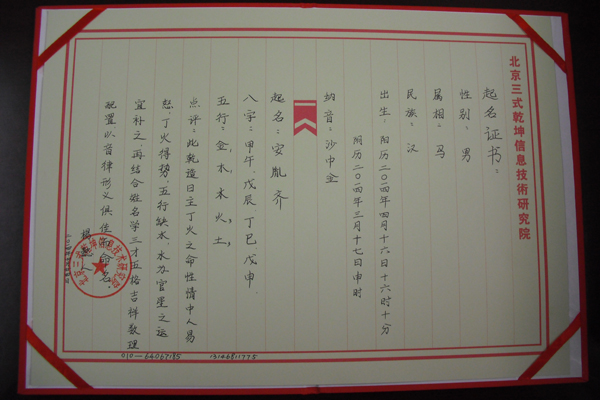 北京三式乾坤信息技術研究院
起名证书：
性别：男
属相：马
民族：汉
出生：阳历二〇一四年四月十六日十六时十分
阴历二〇一四年三月十七日申时
纳音：沙中金
起名：安胤齐
八字：甲午、戊辰、丁巳、戊申.
五行：金，水，木，火，土，
点评：此乾造日主丁火之命性情中人易
怒，丁火得势，五行缺水，水为官星之运
宜补之，再结合姓名学三才五格吉祥数理
配置，以音律形义俱佳而命名。
010—64067185
13146811775